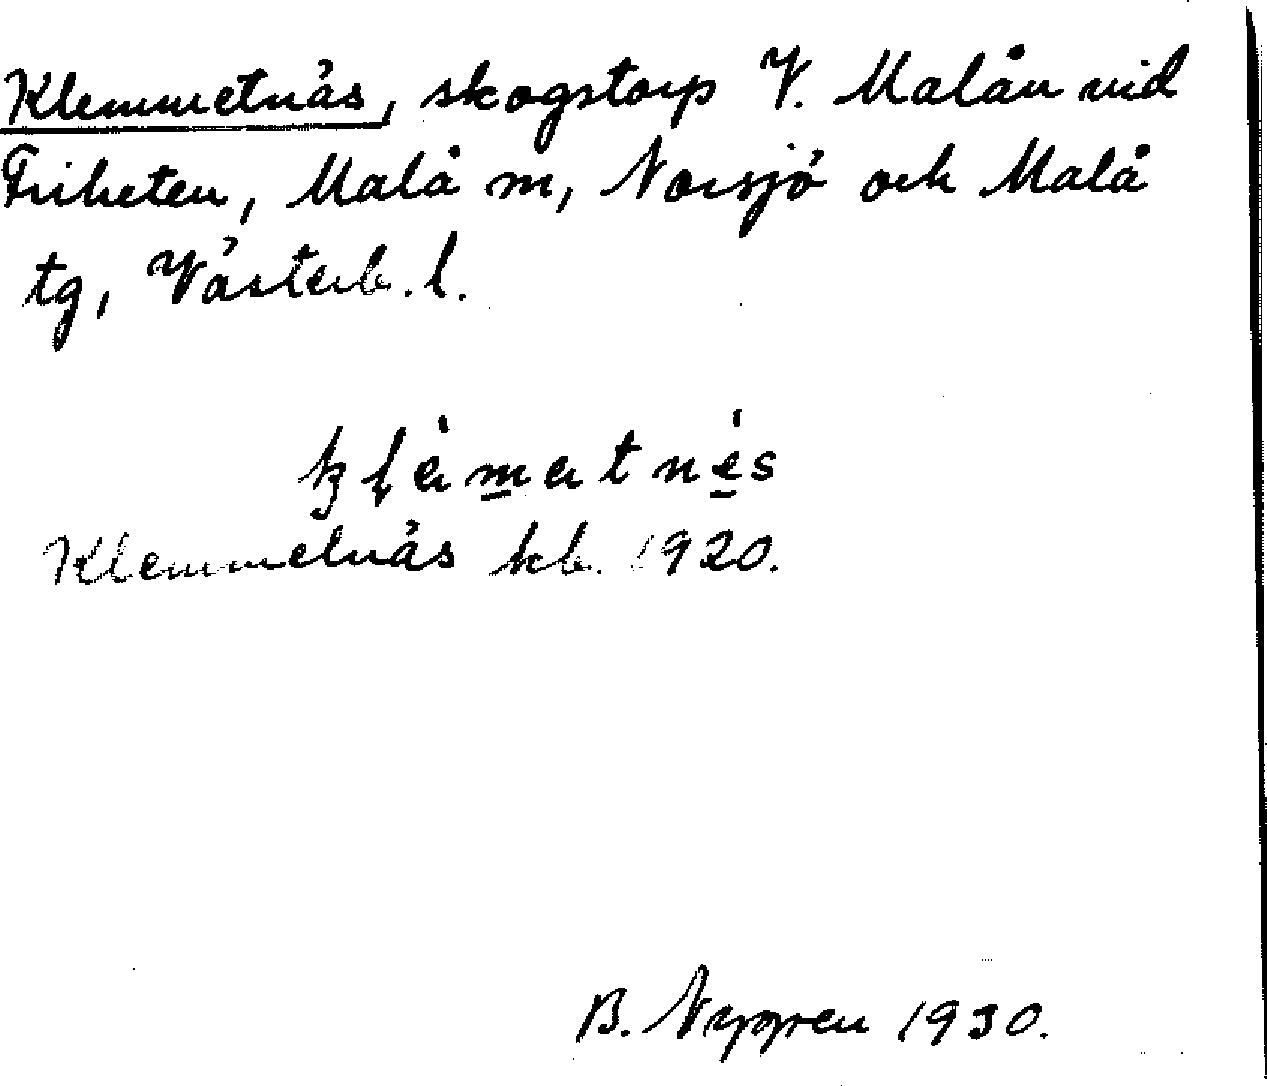 Klemmetnäs, skogstorp V. Malån vid
Friheten, Malå m, Norsjö och Malå
tg, Västerb. l.
Klemmetnäs kb. 1920.
B. Nygren 1930.